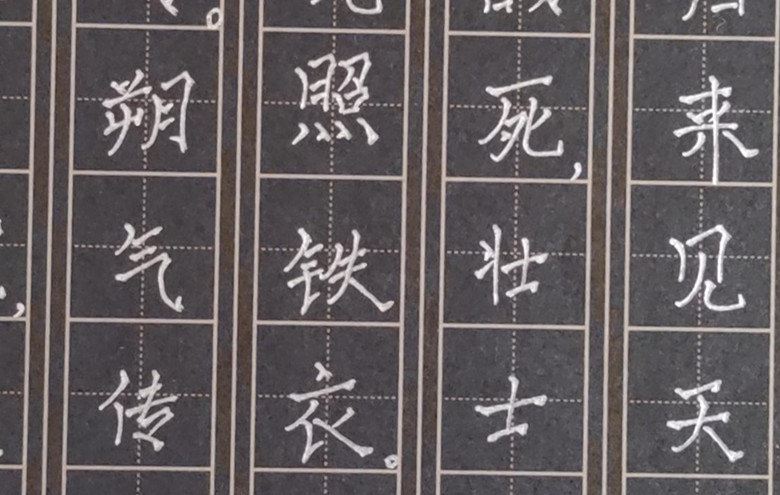 朔气传
照铁衣。
死,壮士
来见天